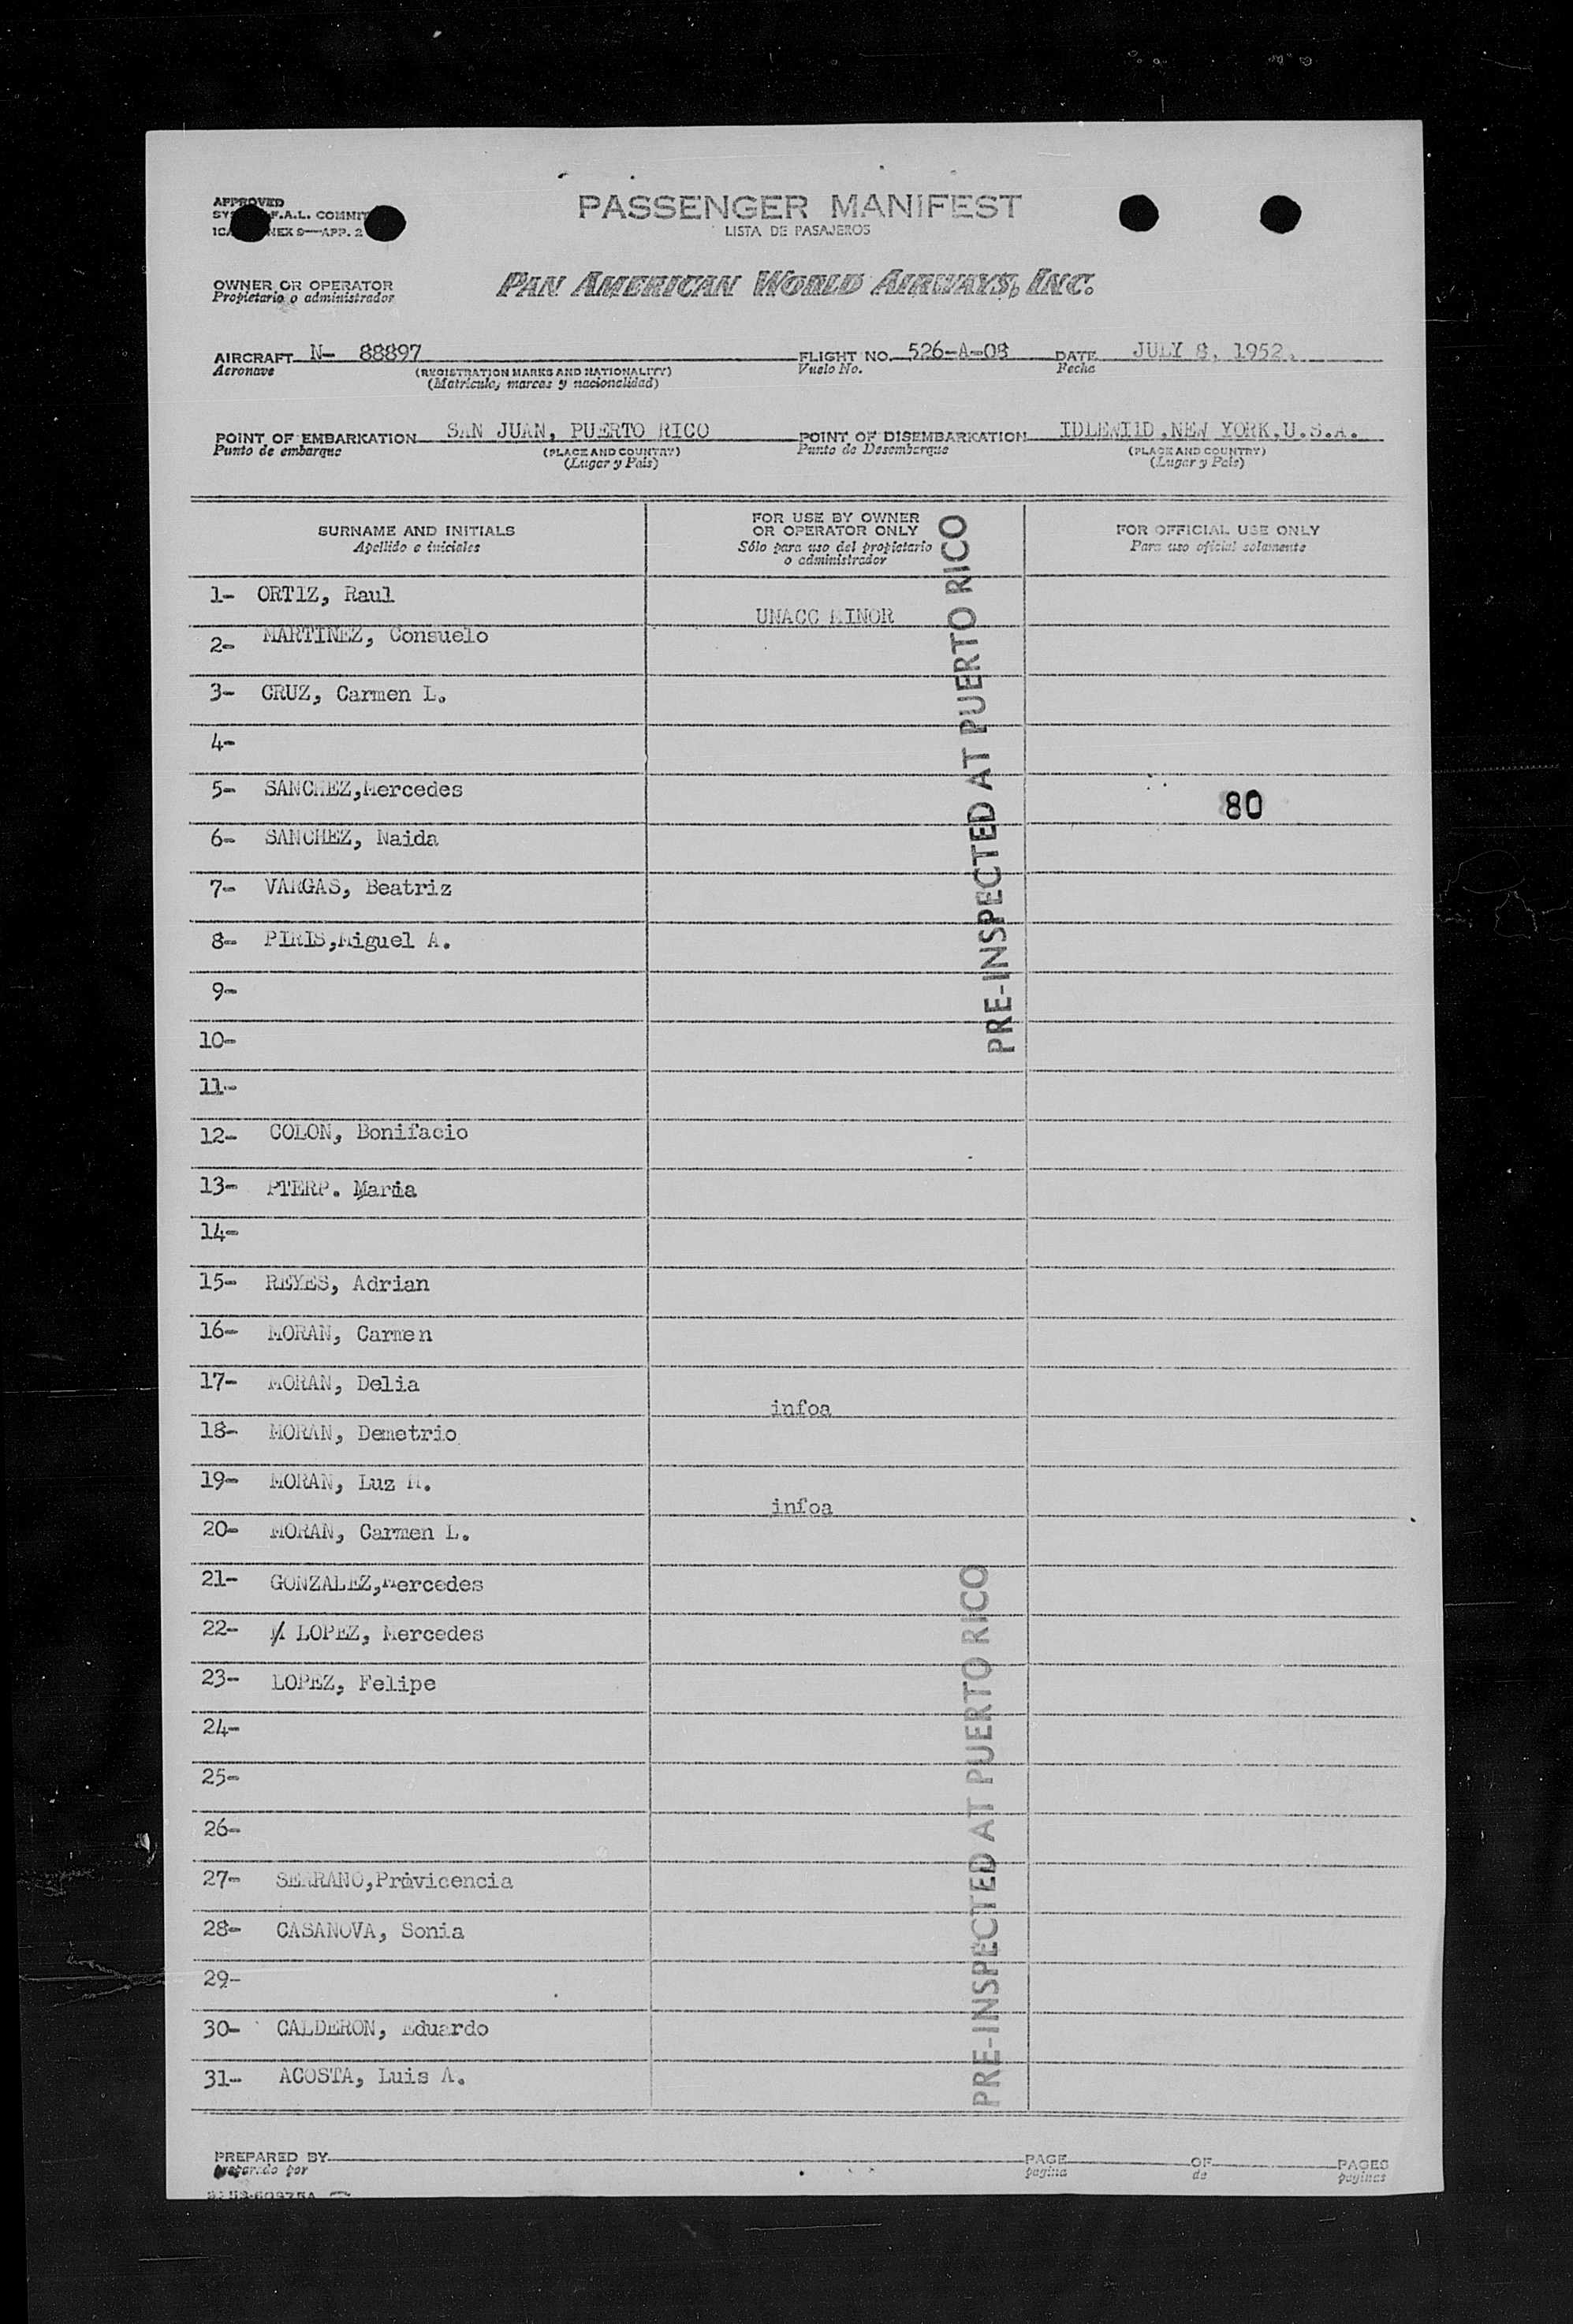 APPROVED
F.A.L. COMMIT
NEX 9—APP. 2
PASSENGER MANIFEST
LISTA DE PASAJEROS
OWNER OR OPERATOR
Propietario o administrador
PAN AMERICAN WORLD AIRWAYS, INC.
AIRCRAFT N- 88897 FLIGHT NO. 526-A-08 DATE JULY 8, 1952.
Aeronave (REGISTRATION MARKS AND NATIONALITY) Vuelo No. Fecha
(Matricula, marcas y nacionalidad)
POINT OF EMBARKATION SAN JUAN, PUERTO RICO POINT OF DISEMBARKATION IDLEWIID,NEW YORK,U.S.A.
Punto de embarque (PLACE AND COUNTRY) Punto de Desembarque (PLACE AND COUNTRY)
(Lugar y País) (Lugar y País)
SURNAME AND INITIALS
Apellido e iniciales
FOR USE BY OWNER
OR OPERATOR ONLY
Sólo para uso del propietario
o administrador
FOR OFFICIAL USE ONLY
Para uso oficial solamente
1- ORTIZ, Raul
UNACC MINOR
2- MARTINEZ, Consuelo
3- CRUZ, Carmen L.
4-
5- SANCHEZ,Mercedes
80
6- SANCHEZ, Naida
7- VARGAS, Beatriz
8- PIRIS,Miguel A.
9-
10-
11-
12- COLON, Bonifacio
13- PTERP. Maria
14-
15- REYES, Adrian
16- MORAN, Carmen
17- MORAN, Delia
infoa
18- MORAN, Demetrio
19- MORAN, Luz M.
infoa
20- MORAN, Carmen L.
21- GONZALEZ,Mercedes
22- LOPEZ, Mercedes
23- LOPEZ, Felipe
24-
25-
26-
27- SERRANO,Pravicencia
28- CASANOVA, Sonia
29-
30- CALDERON, Eduardo
31- ACOSTA, Luis A.
PRE-INSPECTED AT PUERTO RICO
PRE-INSPECTED AT PUERTO RICO
PREPARED BY PAGE OF PAGES
preparado por pagina de paginas